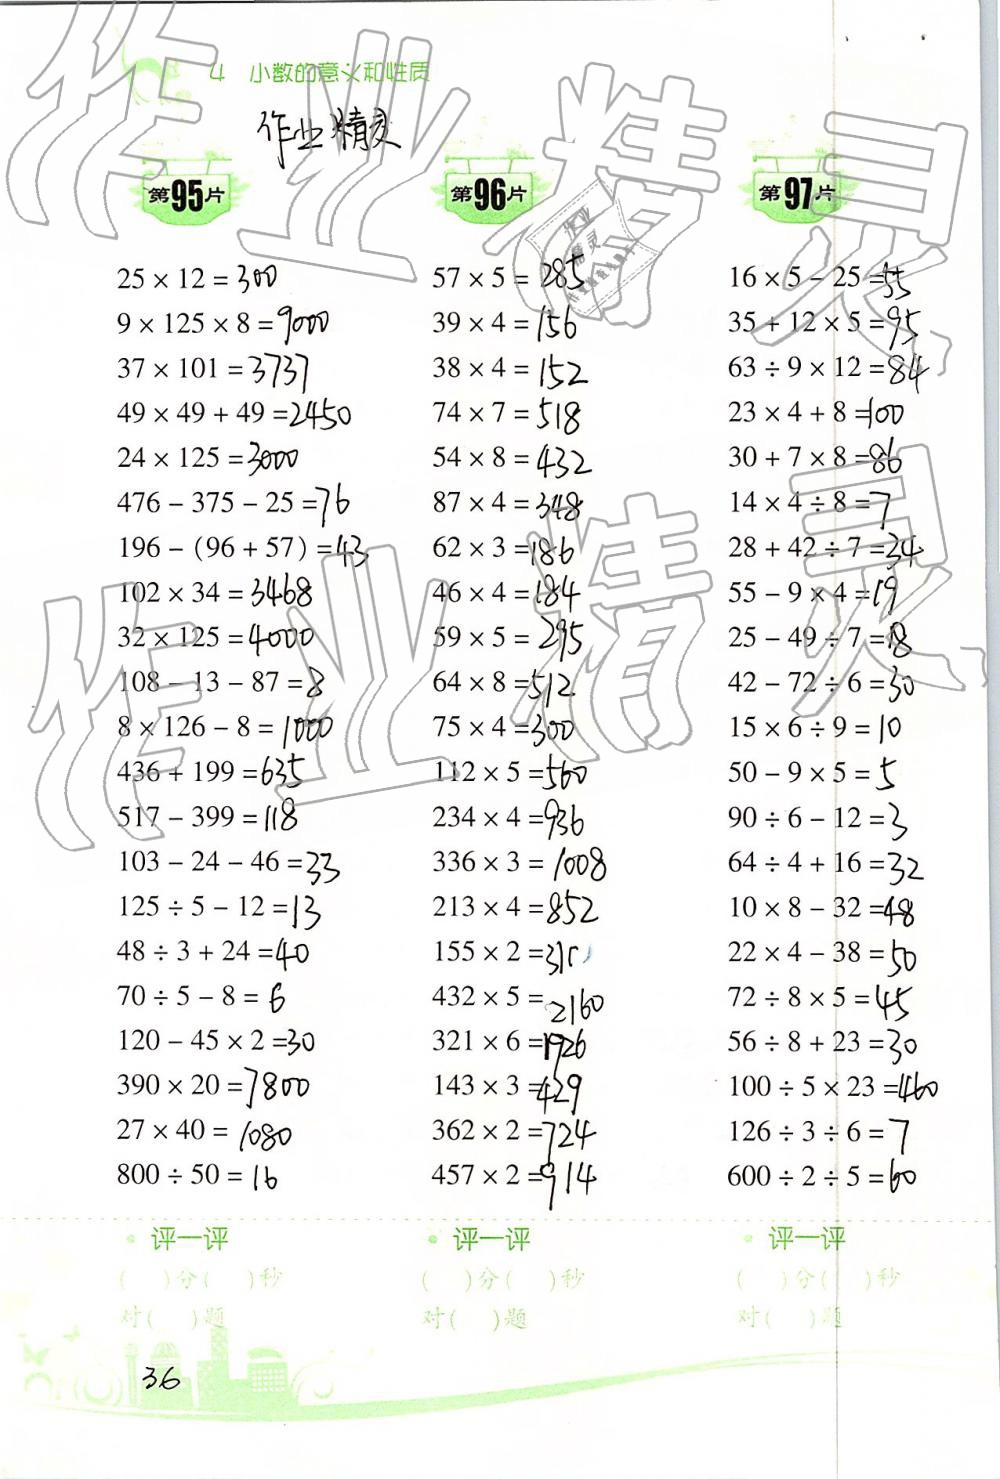 4 小数的意义和性质
作业精灵
第95片
25 × 12 = 300
9 × 125 × 8 = 9000
37 × 101 = 3737
49 × 49 + 49 = 2450
24 × 125 = 3000
476 − 375 − 25 = 76
196 − (96 + 57) = 43
102 × 34 = 3468
32 × 125 = 4000
108 − 13 − 87 = 8
8 × 126 − 8 = 1000
436 + 199 = 635
517 − 399 = 118
103 − 24 − 46 = 33
125 ÷ 5 − 12 = 13
48 ÷ 3 + 24 = 40
70 ÷ 5 − 8 = 6
120 − 45 × 2 = 30
390 × 20 = 7800
27 × 40 = 1080
800 ÷ 50 = 16
评一评
( )分( )秒
对( )题
第96片
57 × 5 = 285
39 × 4 = 156
38 × 4 = 152
74 × 7 = 518
54 × 8 = 432
87 × 4 = 348
62 × 3 = 186
46 × 4 = 184
59 × 5 = 295
64 × 8 = 512
75 × 4 = 300
112 × 5 = 560
234 × 4 = 936
336 × 3 = 1008
213 × 4 = 852
155 × 2 = 310
432 × 5 = 2160
321 × 6 = 1926
143 × 3 = 429
362 × 2 = 724
457 × 2 = 914
评一评
( )分( )秒
对( )题
第97片
16 × 5 − 25 = 55
35 + 12 × 5 = 95
63 ÷ 9 × 12 = 84
23 × 4 + 8 = 100
30 + 7 × 8 = 86
14 × 4 ÷ 8 = 7
28 + 42 ÷ 7 = 34
55 − 9 × 4 = 19
25 − 49 ÷ 7 = 18
42 − 72 ÷ 6 = 30
15 × 6 ÷ 9 = 10
50 − 9 × 5 = 5
90 ÷ 6 − 12 = 3
64 ÷ 4 + 16 = 32
10 × 8 − 32 = 48
22 × 4 − 38 = 50
72 ÷ 8 × 5 = 45
56 ÷ 8 + 23 = 30
100 ÷ 5 × 23 = 460
126 ÷ 3 ÷ 6 = 7
600 ÷ 2 ÷ 5 = 60
评一评
( )分( )秒
对( )题
36
作业精灵
作业精灵